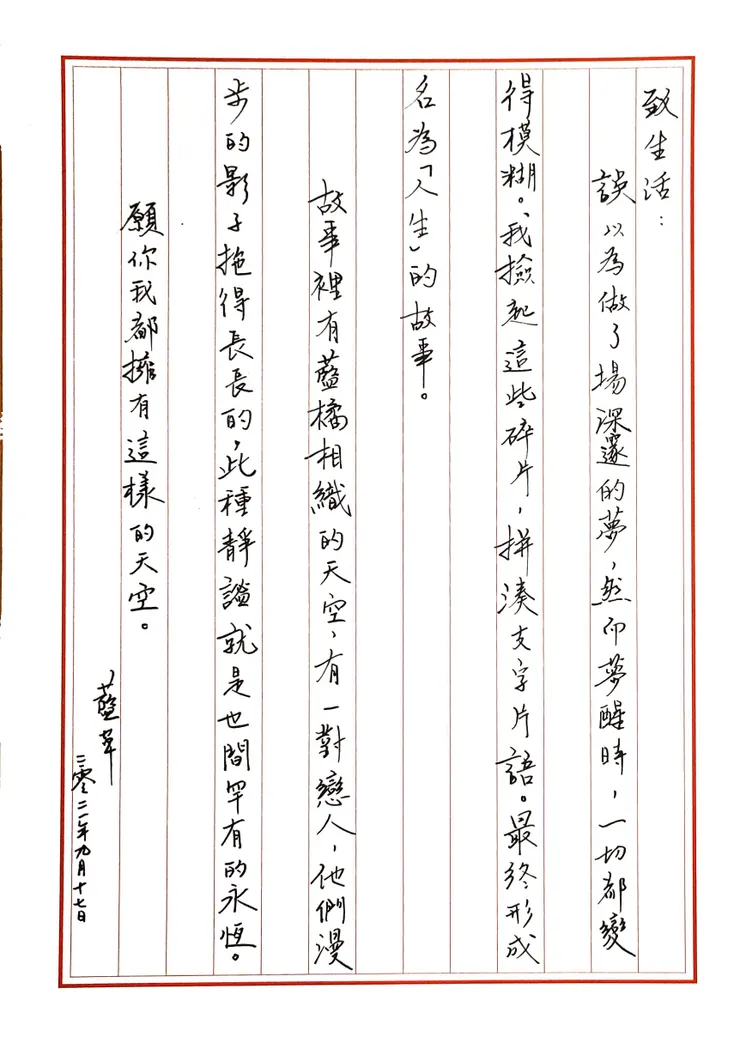 致生活：
誤以為做了場深邃的夢，然而夢醒時，一切都變
得模糊。我撿起這些碎片，拼湊支字片語。最終形成
名為「人生」的故事。
故事裡有藍橘相織的天空，有一對戀人，他們漫
步的影子拖得長長的，此種靜謐就是也間罕有的永恆。
願你我都擁有這樣的天空。
藍草
二零二一年九月十七日